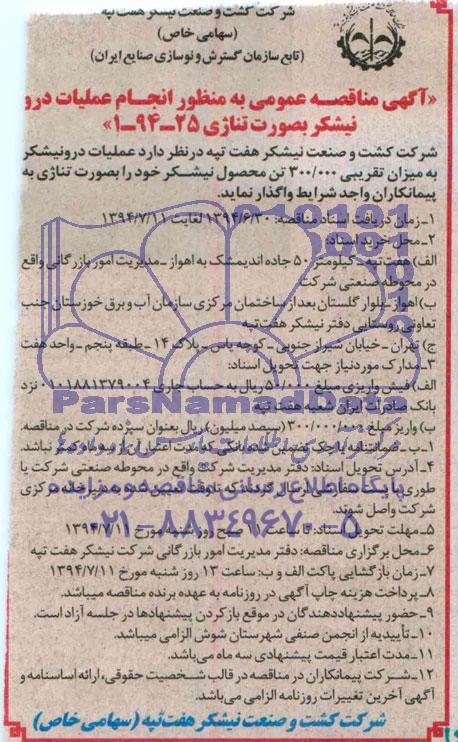 شرکت کشت و صنعت نیشکر هفت تپه
(سهامی خاص)
(تابع سازمان گسترش و نوسازی صنایع ایران)
«آگهی مناقصه عمومی به منظور انجام عملیات درو
نیشکر بصورت تناژی ۲۵-۹۴-۱»
شرکت کشت و صنعت نیشکر هفت تپه درنظر دارد عملیات درو نیشکر
به میزان تقریبی ۳۰۰/۰۰۰ تن محصول نیشکر خود را بصورت تناژی به
پیمانکاران واجد شرایط واگذار نماید.
۱- زمان دریافت اسناد مناقصه: ۱۳۹۴/۶/۳۰ لغایت ۱۳۹۴/۷/۱۱
۲- محل خرید اسناد:
الف) هفت تپه - کیلومتر ۵۰ جاده اندیمشک به اهواز - مدیریت امور بازرگانی واقع
در محوطه صنعتی شرکت
ب) اهواز - بلوار گلستان بعد از ساختمان مرکزی سازمان آب و برق خوزستان جنب
تعاونی روستایی دفتر نیشکر هفت تپه
ج) تهران - خیابان شیراز جنوبی - کوچه یاس - پلاک ۱۴ - طبقه پنجم - واحد هفت
۳- مدارک مورد نیاز جهت تحویل اسناد:
الف) فیش واریزی مبلغ ۵۰۰/۰۰۰ ریال به حساب جاری ۰۱۰۱۸۸۱۳۷۹۰۰۴ نزد
بانک صادرات ایران شعبه هفت تپه
ب) واریز مبلغ ۳۰۰/۰۰۰/۰۰۰ (سیصد میلیون) ریال بعنوان سپرده شرکت در مناقصه.
۱- ب- ضمانتنامه یا چک تضمین شده بانکی که مدت اعتبار آن از سه ماه کمتر نباشد.
۴- آدرس تحویل اسناد: دفتر مدیریت شرکت واقع در محوطه صنعتی شرکت یا
طوری با پست سفارشی ارسال گردند که تا وقت تعیین شده به دبیرخانه مرکزی
شرکت واصل شوند.
۵- مهلت تحویل اسناد: تا ساعت ۱۱ صبح روز شنبه مورخ ۱۳۹۴/۷/۱۱
۶- محل برگزاری مناقصه: دفتر مدیریت امور بازرگانی شرکت نیشکر هفت تپه
۷- زمان بازگشایی پاکت الف و ب: ساعت ۱۳ روز شنبه مورخ ۱۳۹۴/۷/۱۱
۸- پرداخت هزینه چاپ آگهی در روزنامه به عهده برنده مناقصه میباشد.
۹- حضور پیشنهاددهندگان در موقع باز کردن پیشنهادها در جلسه آزاد است.
۱۰- تأییدیه از انجمن صنفی شهرستان شوش الزامی میباشد.
۱۱- مدت اعتبار قیمت پیشنهادی سه ماه می‌باشد.
۱۲- شرکت پیمانکاران در مناقصه در قالب شخصیت حقوقی، ارائه اساسنامه و
آگهی آخرین تغییرات روزنامه الزامی می‌باشد.
شرکت کشت و صنعت نیشکر هفت تپه (سهامی خاص)
ParsNamadData
پایگاه اطلاع رسانی مناقصه و مزایده
۰۲۱-۸۸۳۴۹۶۷۰-۵